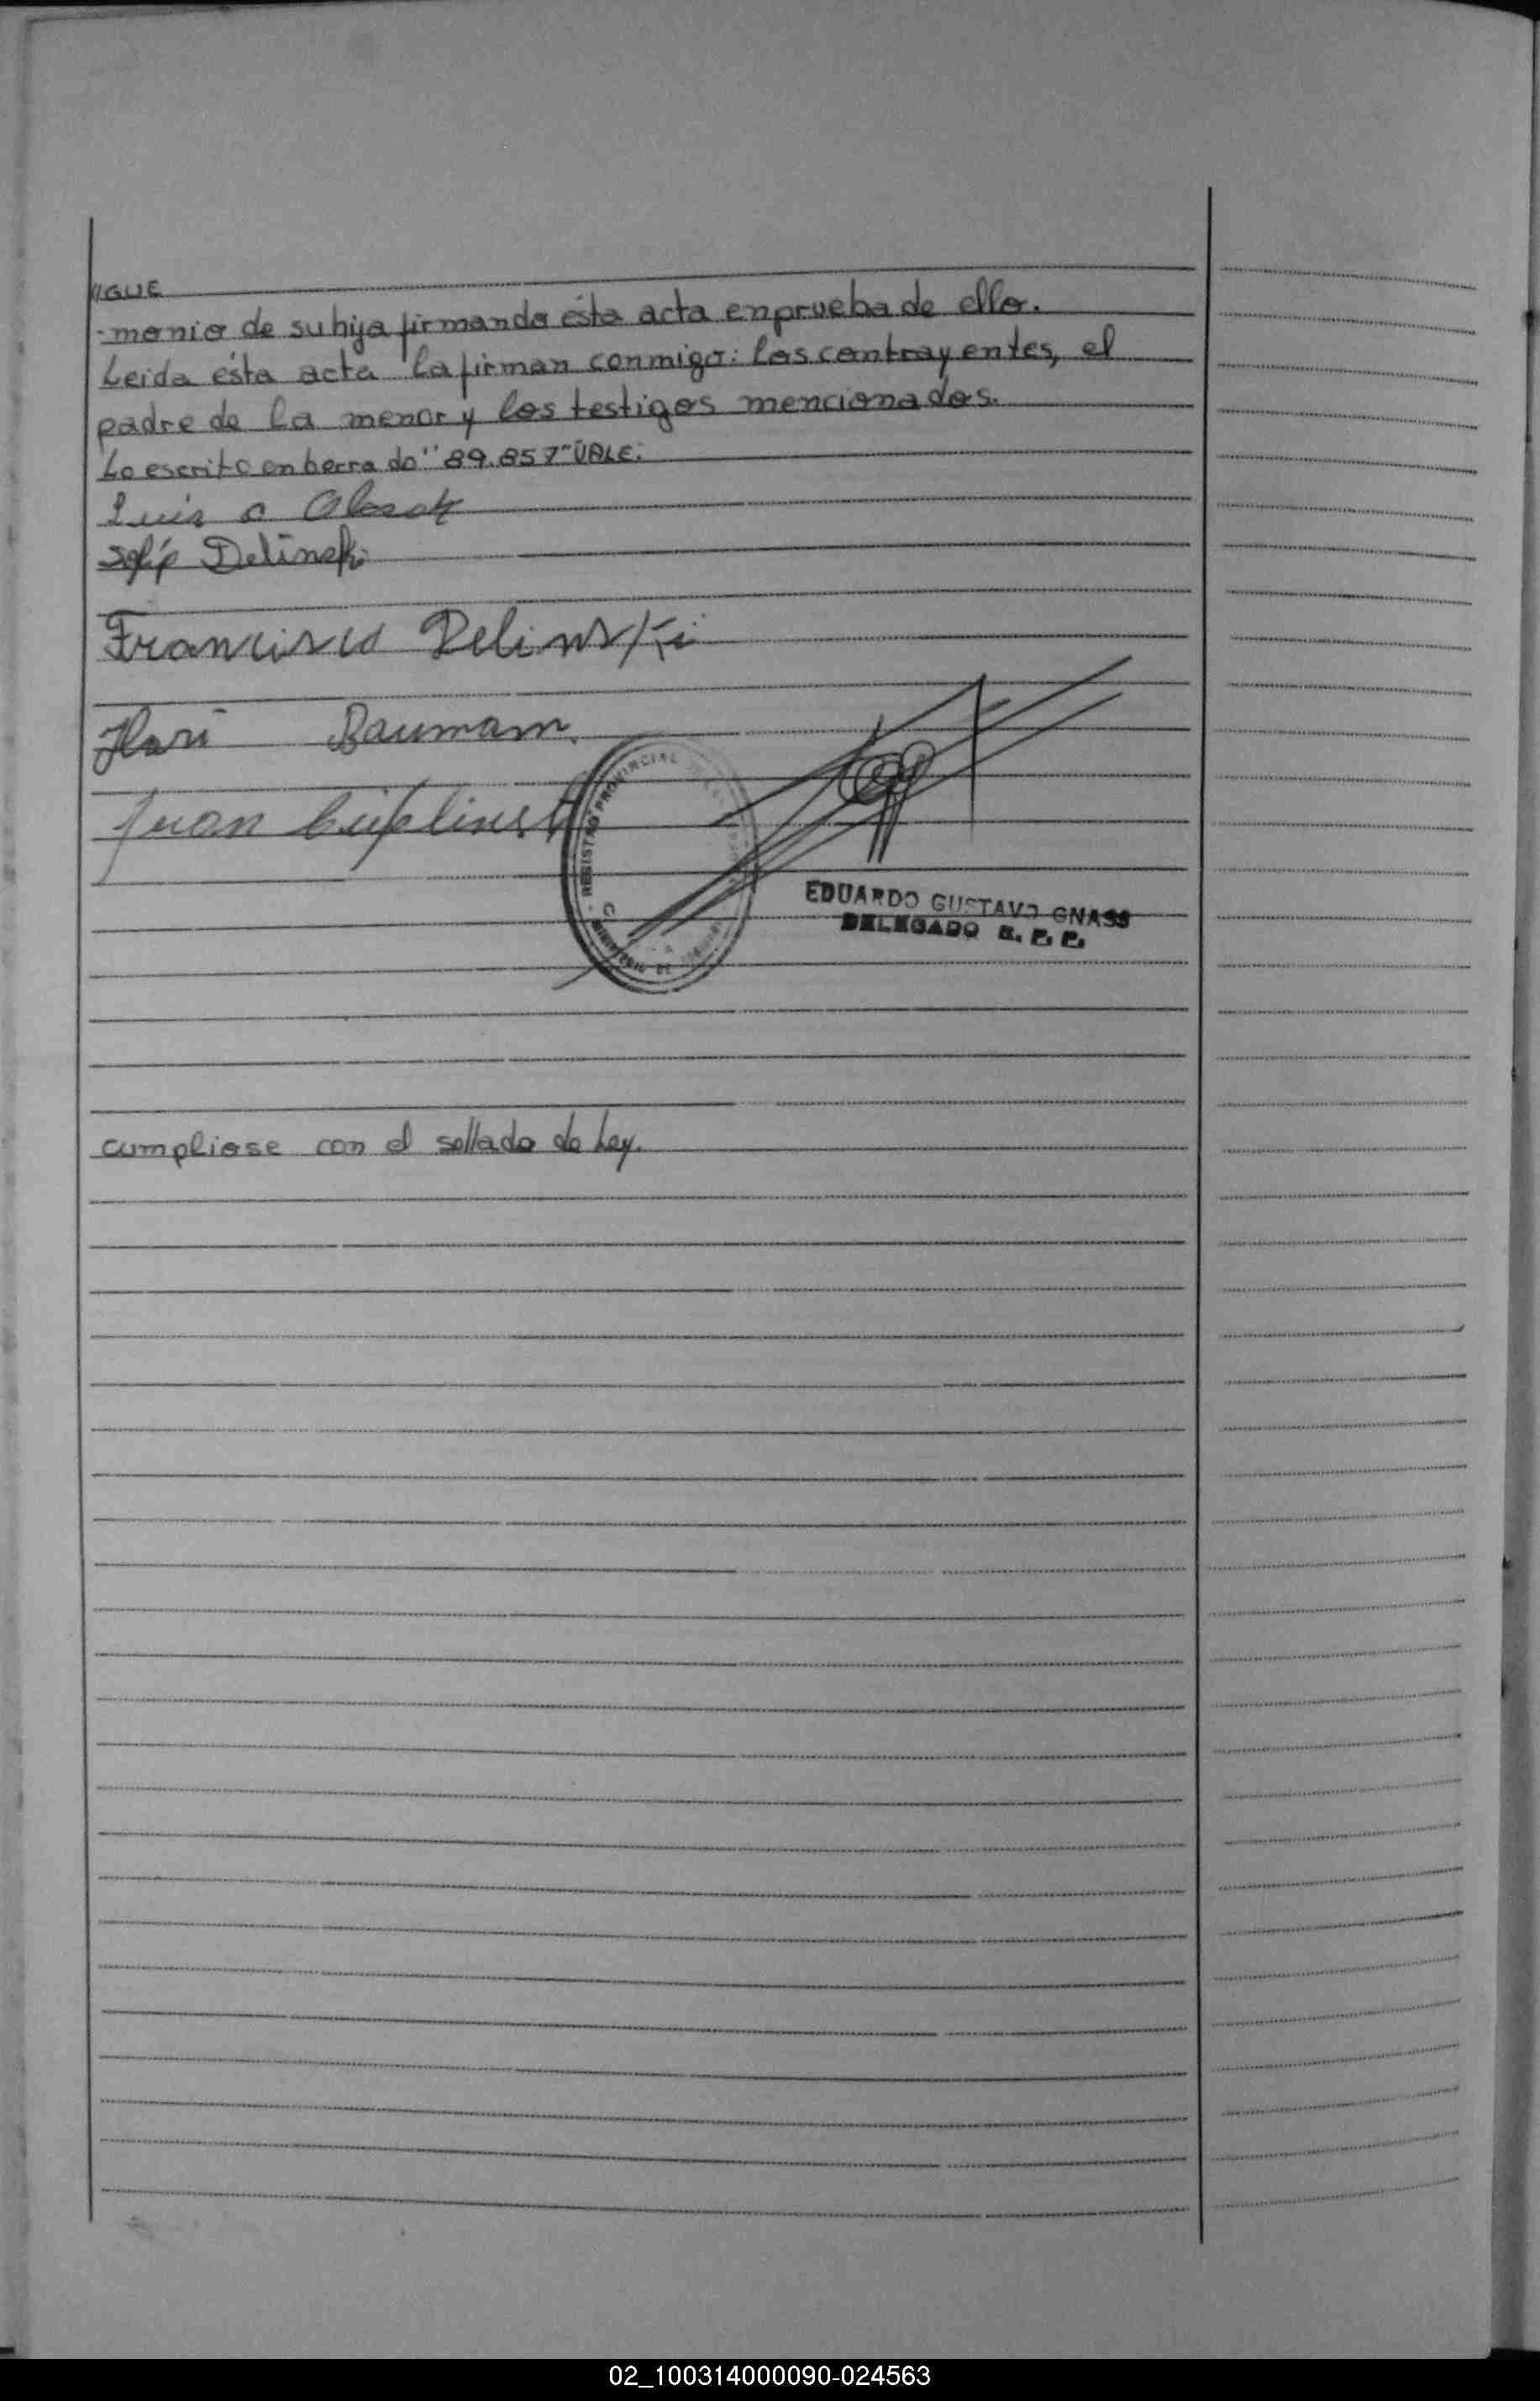 IGUE
-monio de su hija firmando ésta acta en prueba de ello.
Leida ésta acta la firman conmigo: los contrayentes, el
padre de la menor y los testigos mencionados.
Lo escrito en borrado "89.857" VALE.
Luis a
Delinski
Francisco Delinski
Baumann
Juan
REGISTRO PROVINCIAL
MINISTERIO DE
EDUARDO GUSTAVO GNASS
DELEGADO R. P. P.
cumpliose con el sellado de Ley.
02_100314000090-024563